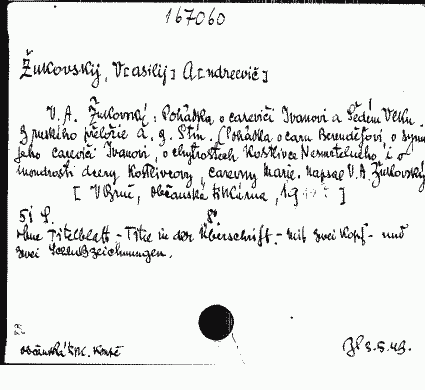 167060
Žukovskij, V[asilij] A[ndreevič]
V. A. Žukovský: Pohádka o careviči Ivanovi a šedém vlku.
Z ruského přeložil a. g. Stín. (Pohádka o caru Berendějovi, o synu
jeho careviči Ivanovi, o chytrostech Kostlivce Nesmrtelného i o
moudrosti dcery Kostlivcovy, carevny Marie, napsal V. A. Žukovský)
[V Brně, Občanská tiskárna, 19 ]
51 S. 8°.
Ohne Titelblatt - Titel in der Überschrift. - Mit zwei Kopf- und
zwei Schlußzeichnungen.
Občanská tisk. Koupě
3.5.49.